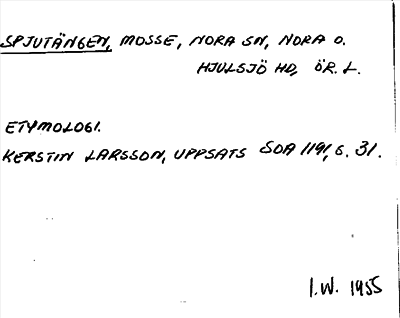 SPJUTÄNGEN, MOSSE, NORA SN, NORA O.
HJULSJÖ HD, ÖR. L.
ETYMOLOGI.
KERSTIN LARSSON, UPPSATS SOA 1191, S. 31.
I.W. 1955